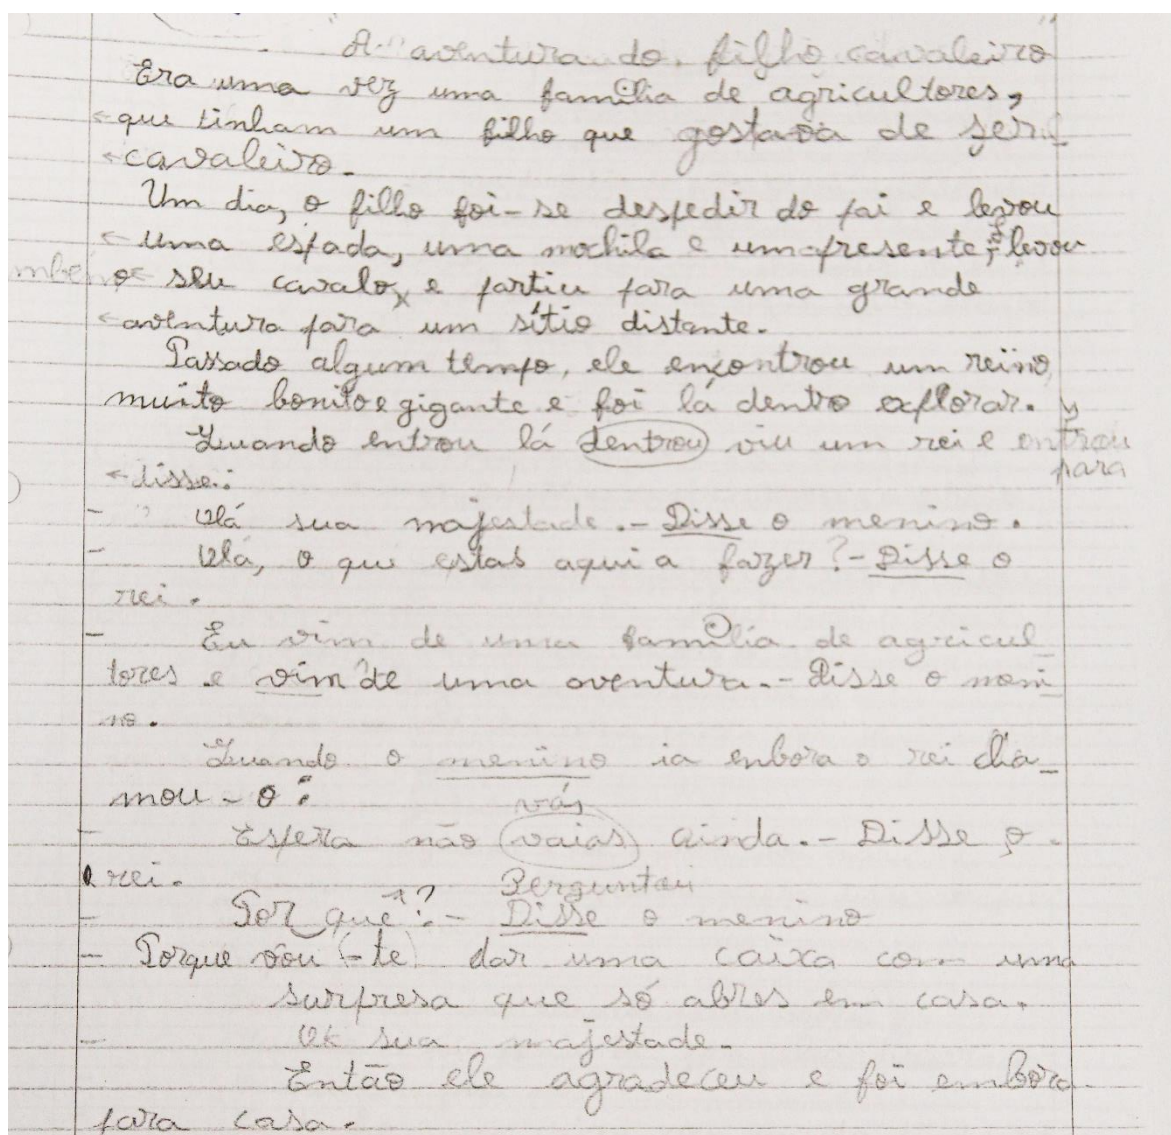 A "aventura do filho cavaleiro"
Era uma vez uma família de agricultores,
que tinham um filho que gostava de ser
cavaleiro.
Um dia, o filho foi-se despedir do pai e levou
uma espada, uma mochila e um presente, levou
o seu cavalo, e partiu para uma grande
aventura para um sítio distante.
Passado algum tempo, ele encontrou um reino
muito bonito e gigante e foi lá dentro explorar.
Quando entrou lá dentrou viu um rei e entrou
para
disse:
- Olá sua majestade. - Disse o menino.
- Olá, o que estas aqui a fazer? - Disse o
rei.
- Eu vim de uma família de agricul-
tores e vim de uma aventura. - Disse o meni-
no.
Quando o menino ia enbora o rei cha-
mou-o:
vás
- Espera não vaias ainda. - Disse o
rei.
Perguntou
- Por quê? - Disse o menino
- Porque vou (-te) dar uma caixa com uma
surpresa que só abres em casa.
- Ok sua majestade.
Então ele agradeceu e foi embora
para casa.